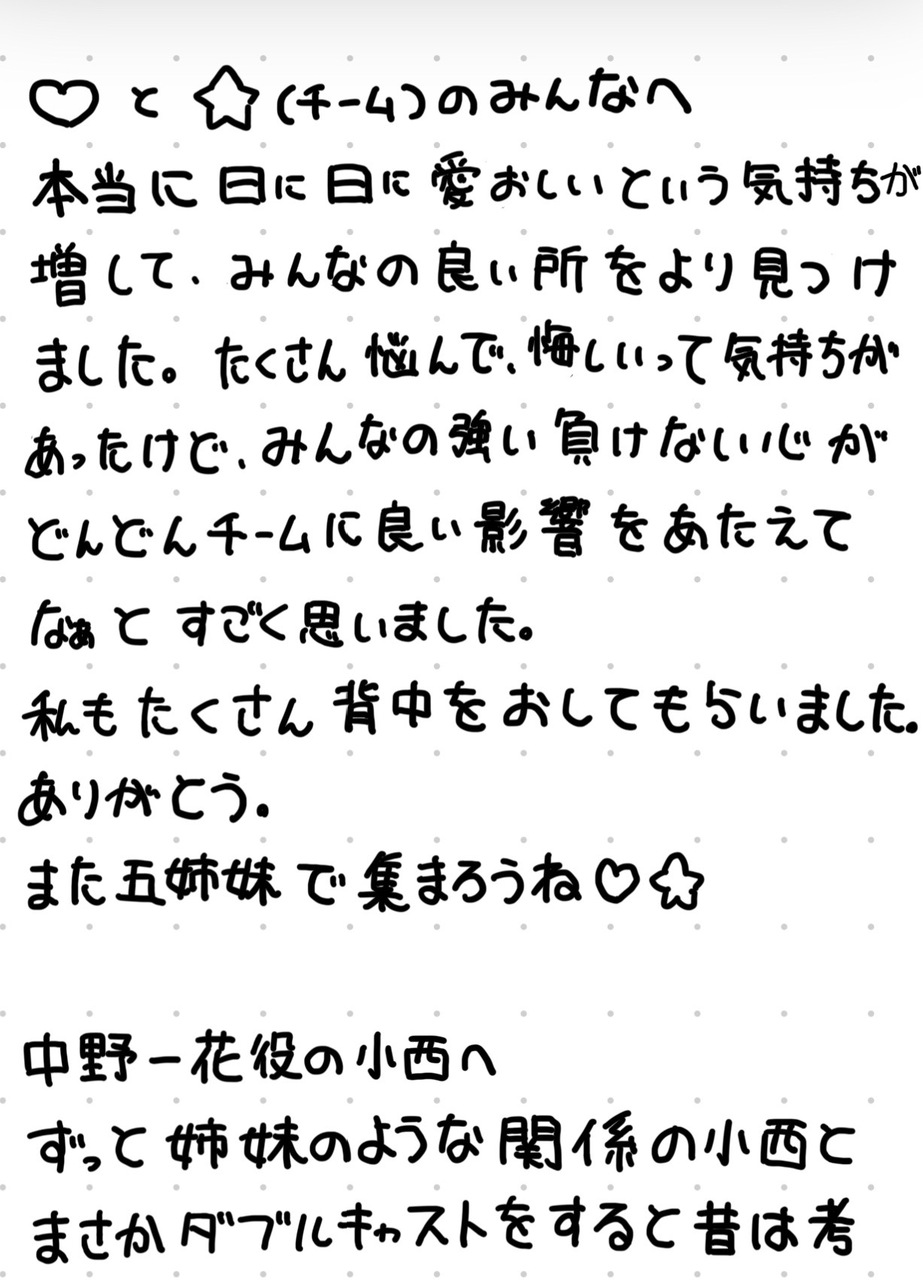 ♡と☆(チーム)のみんなへ
本当に日に日に愛おしいという気持ちが
増して、みんなの良い所をより見つけ
ました。たくさん悩んで、悔しいって気持ちが
あったけど、みんなの強い負けない心が
どんどんチームに良い影響をあたえて
なぁと すごく思いました。
私もたくさん背中をおしてもらいました。
ありがとう。
また五姉妹で集まろうね♡☆
中野一花役の小西へ
ずっと姉妹のような関係の小西と
まさかダブルキャストをすると昔は考